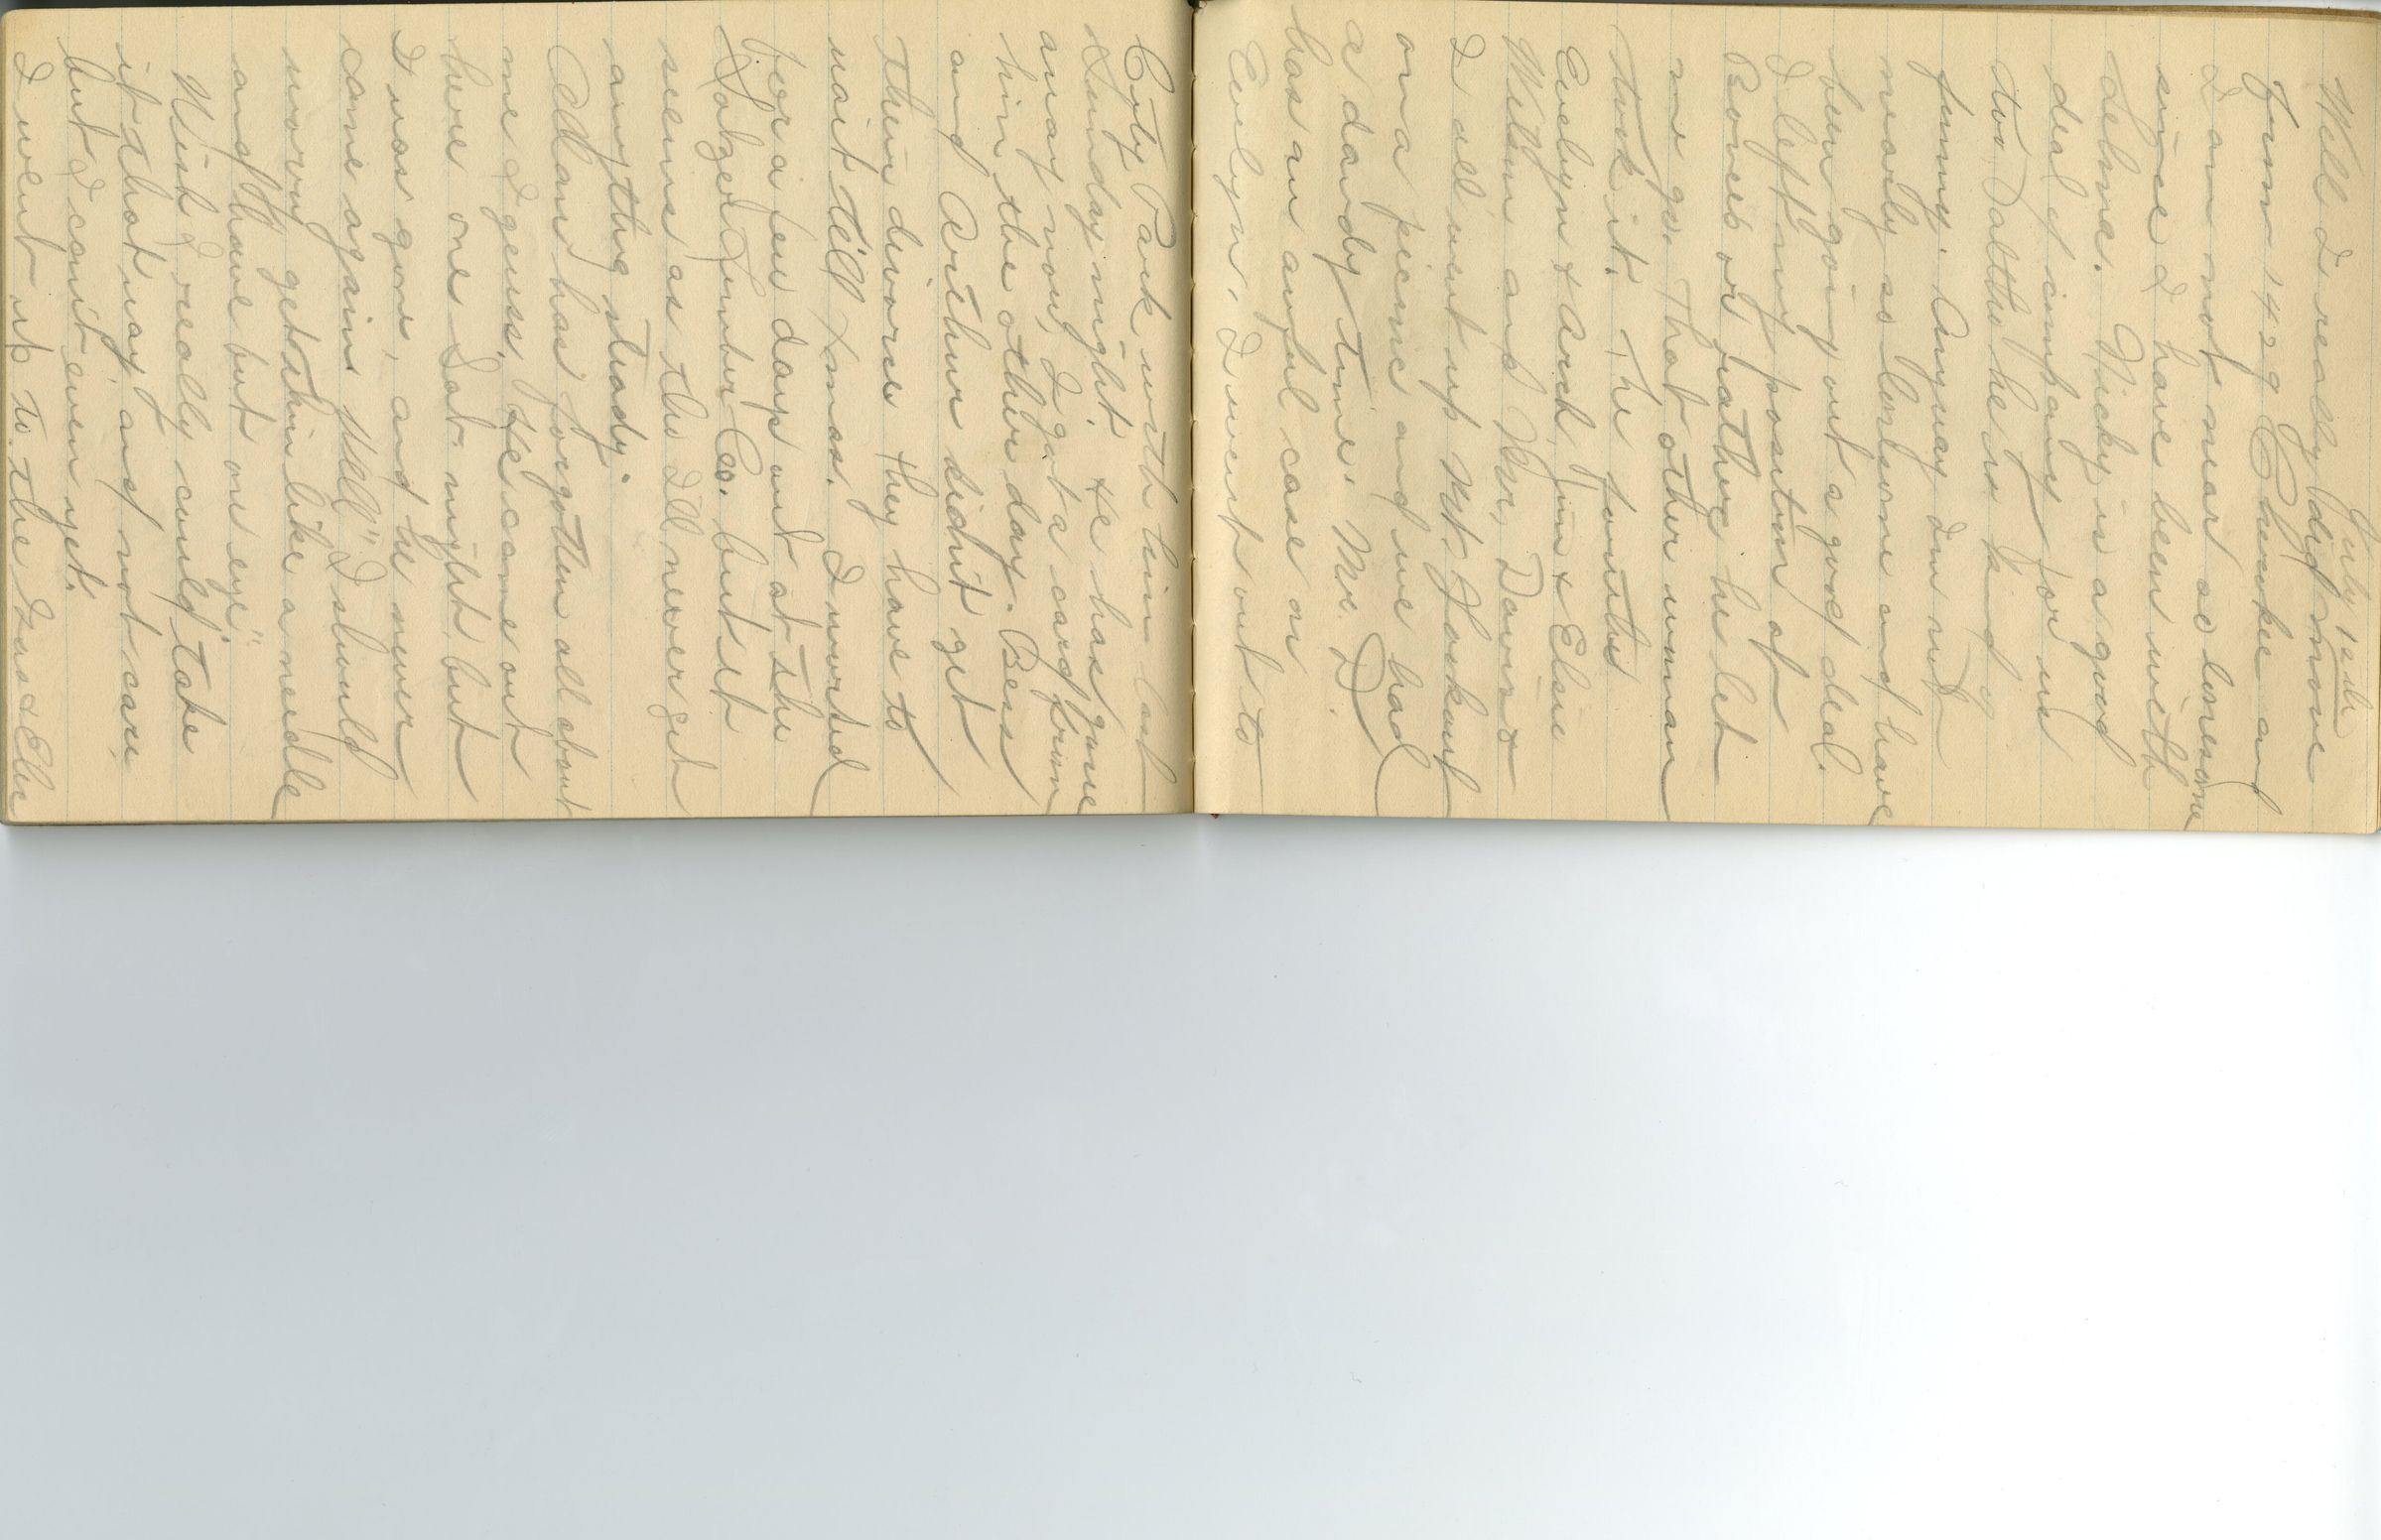 July 12th
Well I really did move
from 1429 Cherokee and
I am not near so lonesome
since I have been with
Nicky is a good
deal of company for us
too, altho he is kind of
funny. Anyway I'm not
nearly so lonesome and have
been going out a good deal.
I left my position at
or rather he let
me go. That other woman
took it. The
Evelyn & Arch, Jim & Elsie
Wilson and Mr. Davis &
I all went up Mt. Lookout
on a picnic and we had
a dandy time. Mr. D.
has an awful case on
Evelyn. I went out to
City Park with him last
Sunday night. He has gone
away now. I got a card from
him the other day. Bess
and Arthur didn't get
their divorce they have to
wait till Xmas. I worked
for a few days out at the
Lumber Co. but it
seems as tho I'll never get
anything steady.
has forgotten all about
me I guess. He came out
here one Sat. night but
I was gone, and he never
came again. Well "I should
worry, get thin like a needle
and have but one eye"
Wish I really could take
it that way and not care,
but I can't even yet.
I went up to the & Elsie